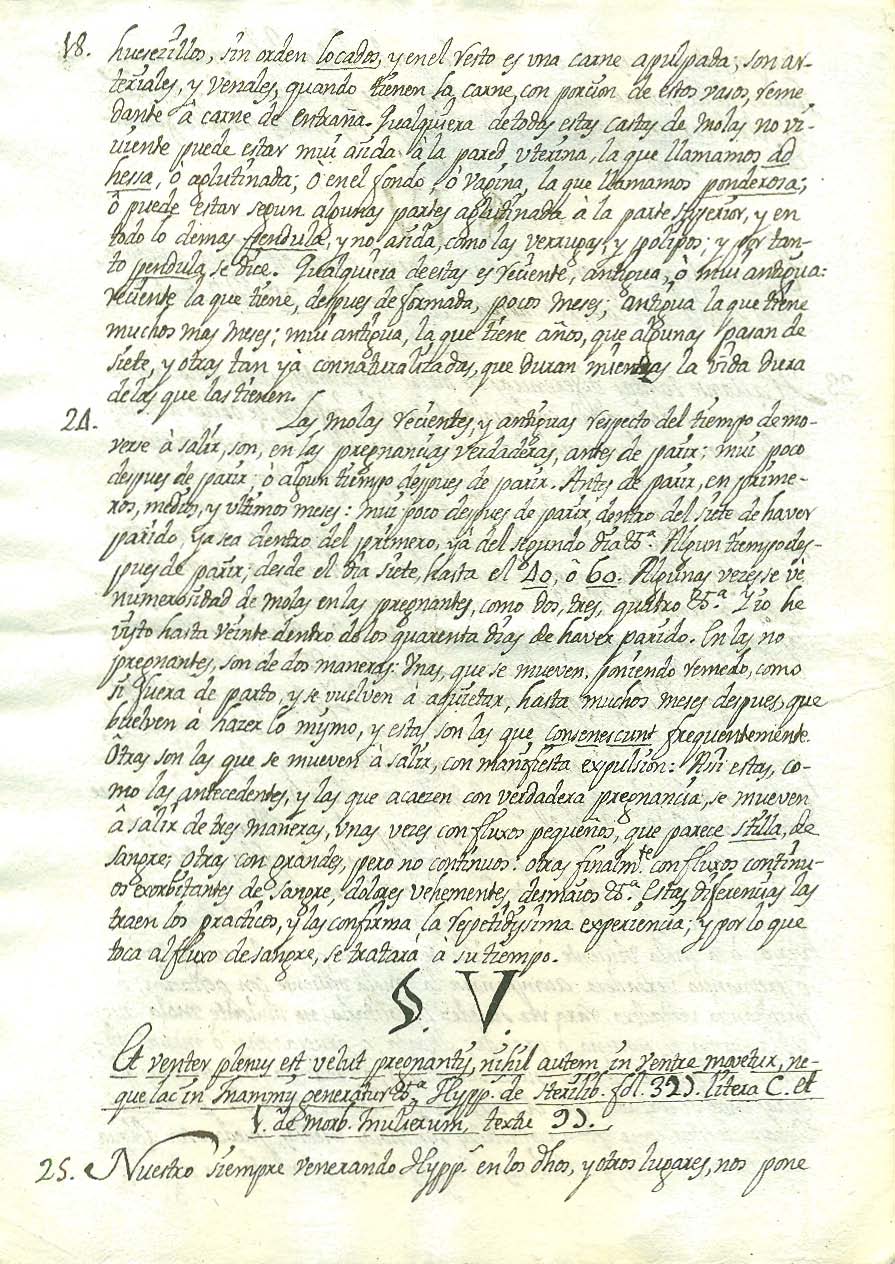 18. huesezillos, sin orden locados, y en el resto es una carne apulpada; son ar-
teriales, y venales, quando tienen la carne, con porcion de estos vasos, reme
dante à carne de entraña. Qualquiera de todas estas castas de molas no vi-
viente puede estar mui asida à la pared uterina, la que llamamos ad
hessa, ò aglutinada; ò en el fondo, ò vagina, la que llamamos ponderosa;
ô puede estar segun algunas partes aglutinada à la parte superior, y en
todo lo demas pendula, y no asida, como las verrugas, y polipos; y por tan-
to pendula se dice. Qualquiera de estas es reciente, antigua, ò mui antigua:
reciente la que tiene, despues de formada, pocos meses; antigua la que tiene
muchos mas meses; mui antigua, la que tiene años, que algunas pasan de
siete, y otras tan yà connaturalizadas, que duran mientras la vida dura
de las que las tienen.
24. Las molas recientes, y antiguas respecto del tiempo de mo-
verse à salir, son, en las pregnancias verdaderas, antes de parir; mui poco
despues de parir; ò algun tiempo despues de parir. Antes de parir, en prime-
ros, medios, y ultimos meses: mui poco despues de parir, dentro del siete de haver
parido, ya sea dentro del primero, yà del segundo dia &ª. Algun tiempo des-
pues de parir; desde el dia siete, hasta el 40, ô 60. Algunas vezes se vè
numerosidad de molas en las pregnantes, como dos, tres, quatro &ª. Y io he
visto hasta veinte dentro de los quarenta dias de haver parido. En las no
pregnantes, son de dos maneras: Unas, que se mueven, poniendo remedo, como
si fuera de parto, y se vuelven à aquietar, hasta muchos meses despues, que
buelven à hazer lo mysmo, y estas son las que consenescunt frequentemente.
Ôtras son las que se mueven à salir, con manifiesta expulsion: Asi estas, co-
mo las antecedentes, y las que acaezen con verdadera pregnancia, se mueven
â salir de tres maneras, unas vezes con fluxos pequeños, que parece stilla, de
sangre; otras con grandes, pero no continuos: otras finalmte. con fluxos continu-
os exorbitantes de sangre, dolores vehementes, desmaios &ª. Estas diferencias las
traen los practicos, y las confirma la repetidyssima experiencia; y por lo que
toca al fluxo de sangre, se tratarà à su tiempo.
§. V.
Et venter plenus est velut pregnantis, nihil autem in ventre movetur, ne-
que lac in mammis generatur &ª. Hypp. de Sterilib. fol. litera C. et
de Morb. mulierum, textu
25. Nuestro siempre venerando Hypp. en los dhos, y otros lugares, nos pone